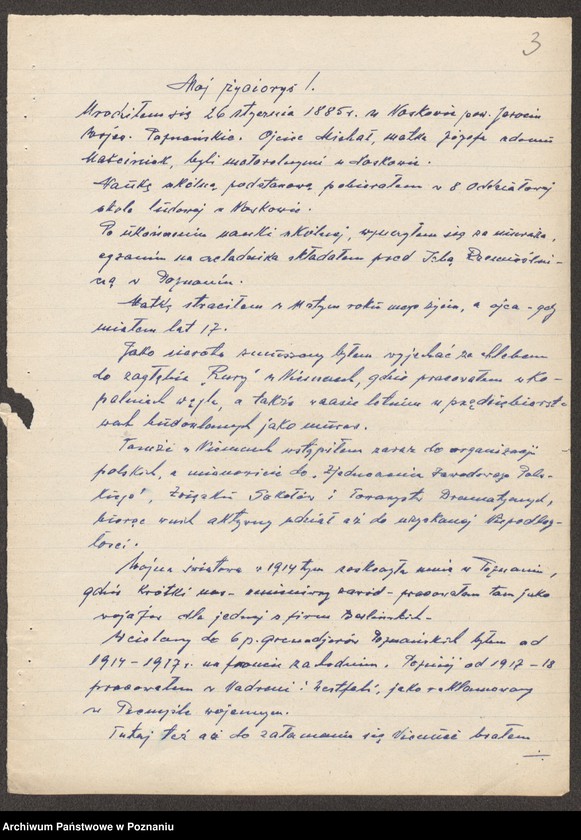 3
Mój życiorys!
Urodziłem się 26 stycznia 1885 r. w Noskowie pow. Jarocin
Wojew. Poznańskie. Ojciec Michał, matka Józefa z domu
Maciniak, byli w Noskowie.
Naukę szkolną podstawową pobierałem w 8 oddziałowej
szkole ludowej w Noskowie.
Po ukończeniu nauki szkolnej, wyuczyłem się za murarza,
egzamin na czeladnika składałem przed Izbą Rzemieślni-
czą w Poznaniu.
Matkę straciłem w 4tym roku mego życia, a ojca - gdy
miałem lat 17.
Jako sierota zmuszony byłem wyjechać za chlebem
do zagłębia "Rury" w Niemczech, gdzie pracowałem w ko-
palniach węgla, a także w czasie letnim w przedsiębiorst-
wach budowlanych jako murarz.
Tamże w Niemczech wstąpiłem zaraz do organizacji
polskich, a mianowicie do "Zjednoczenia Zawodowego Pols-
kiego", Związku Sokołów i Towarzystw Dramatycznych,
biorąc w nich aktywny udział aż do uzyskanej Niepodleg-
łości.
Wojna światowa w 1914 tym zaskoczyła mnie w Poznaniu,
gdzie krótki czas - zmieniwszy zawód - pracowałem tam jako
wojażer dla jednej z firm Berlińskich -
Wcielony do 6 p. grenadjerów Poznańskich byłem od
1914 - 1917 r. na froncie zachodnim. Później od 1917 - 18
pracowałem w Nadrenii i Westfalii, jako reklamowany
w Przemyśle wojennym.
Tutaj też aż do załamania się Niemiec brałem
Archiwum Państwowe w Poznaniu